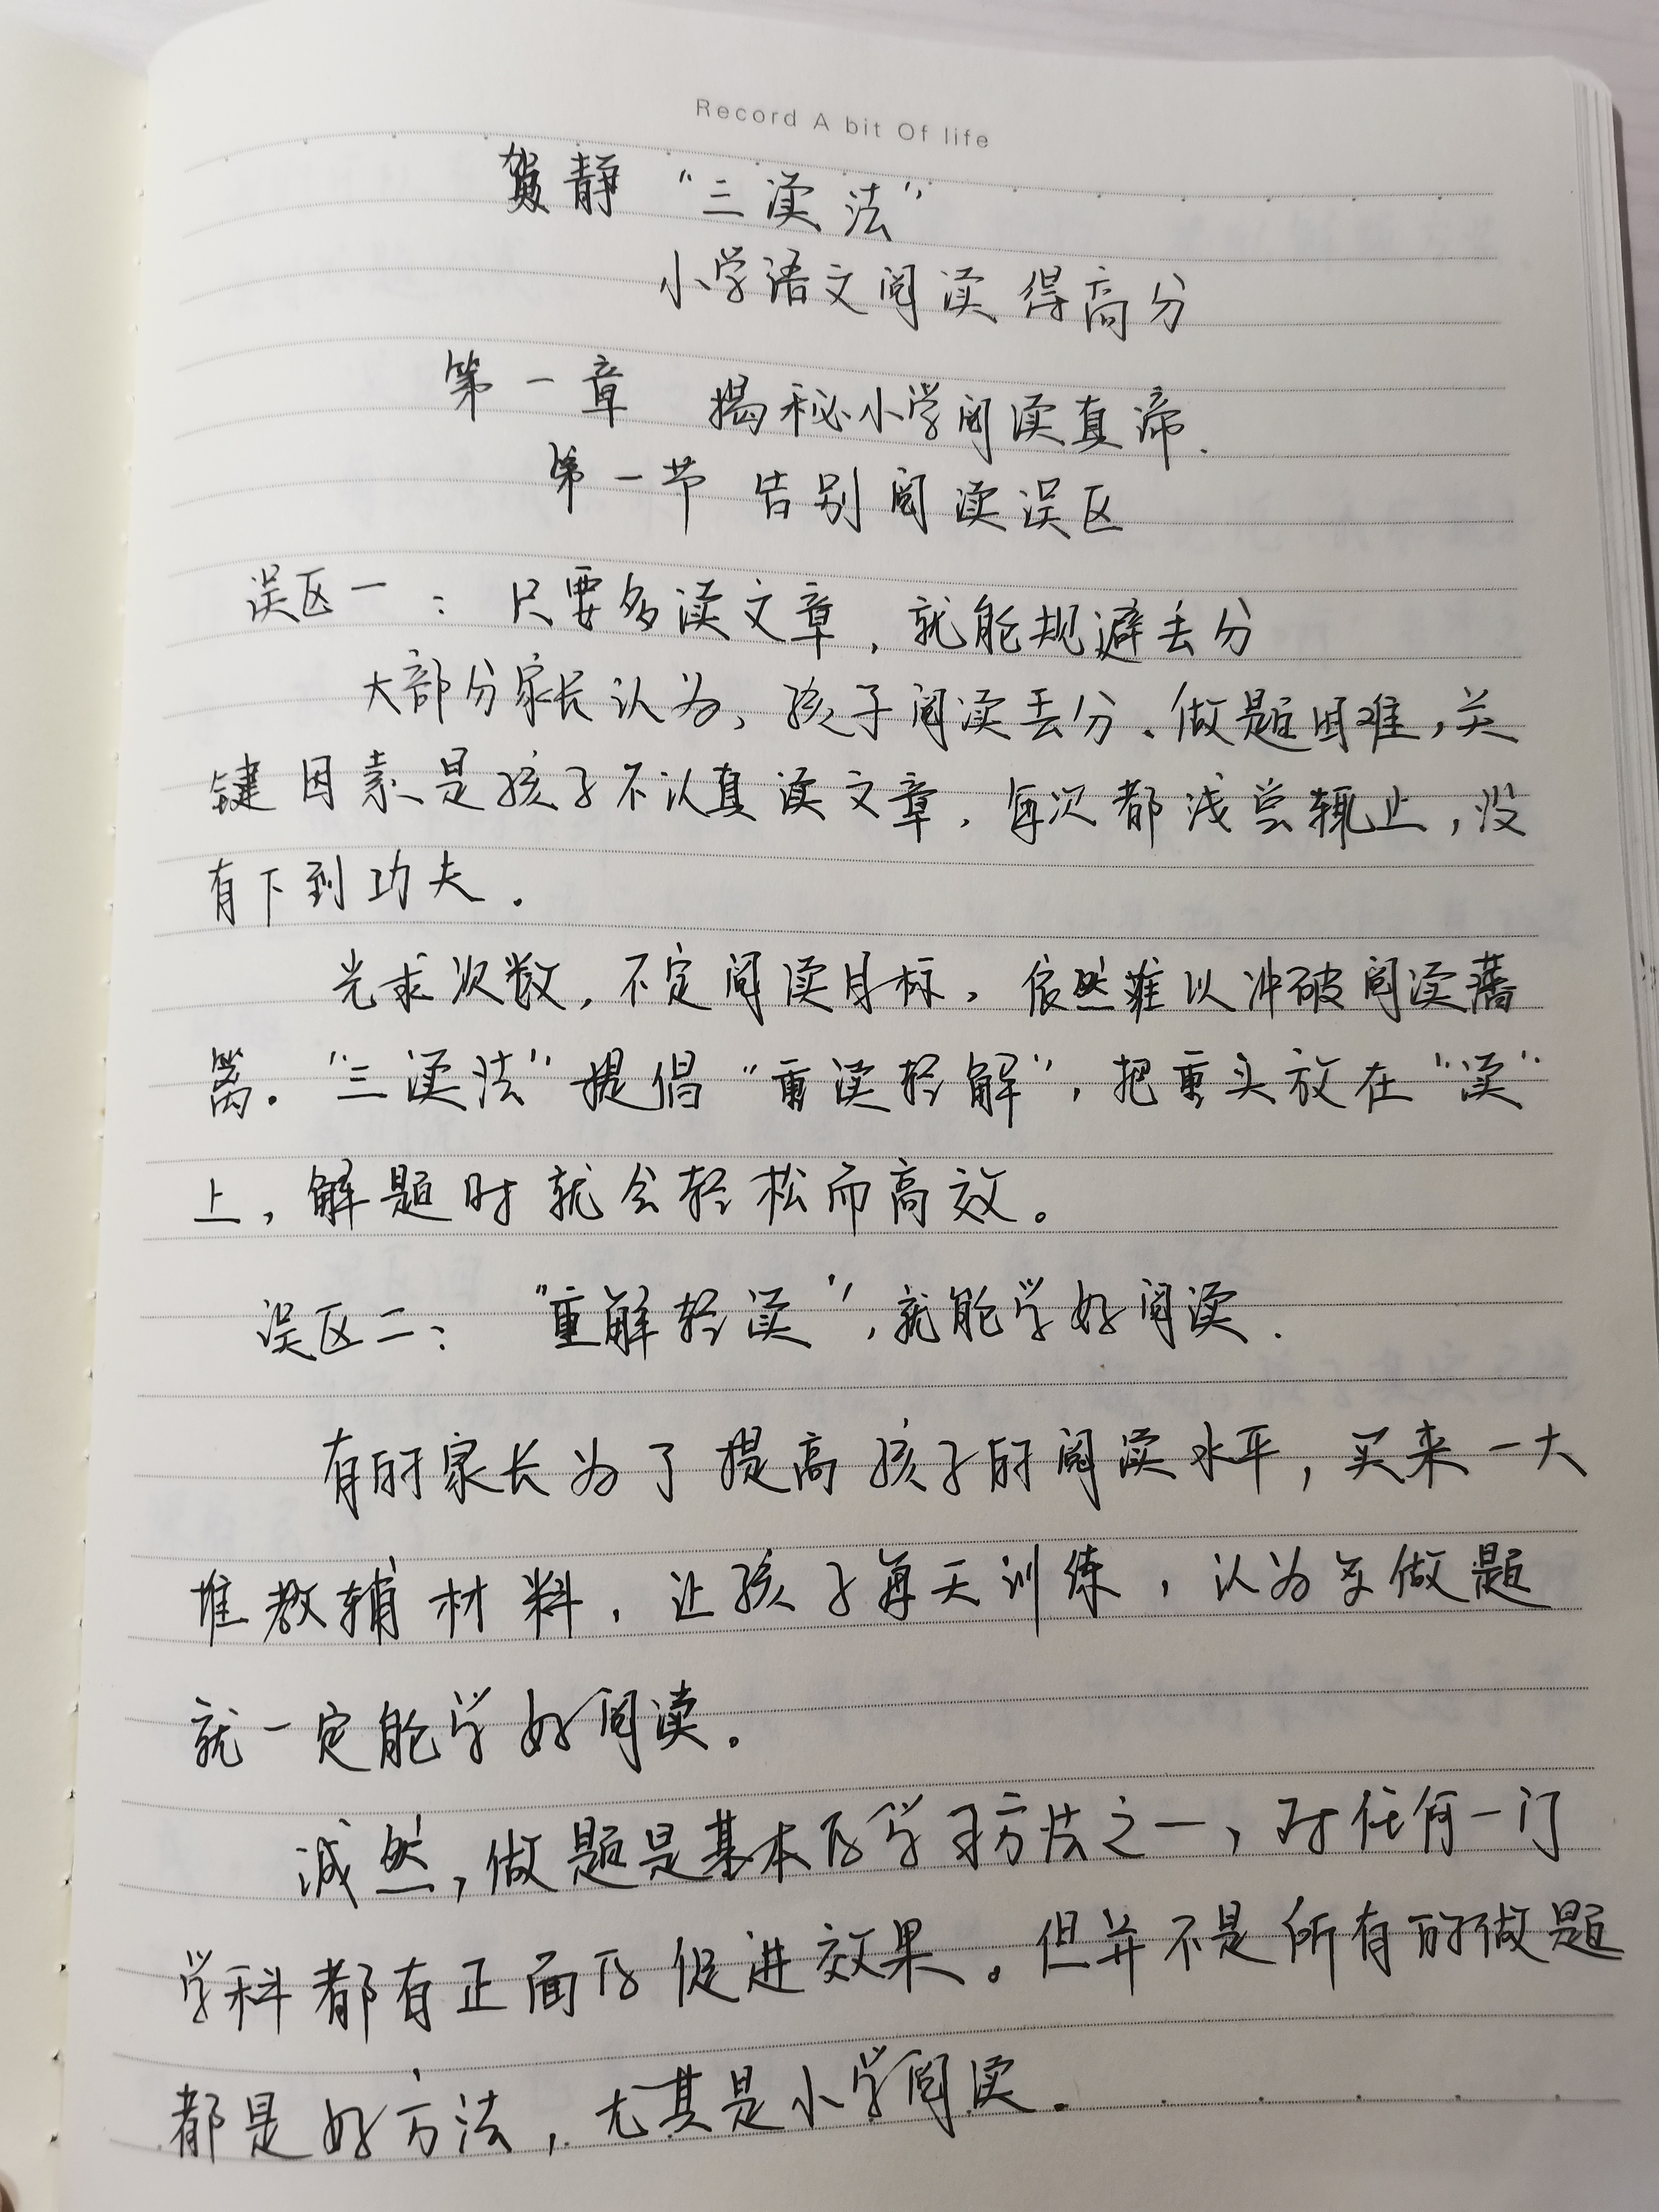 Record A bit Of life
贺静 “三读法”
小学语文阅读 得高分
第一章 揭秘小学阅读真谛.
第一节 告别阅读误区
误区一：只要多读文章,就能规避丢分
大部分家长认为,孩子阅读丢分、做题困难,关
键因素是孩子不认真读文章,每次都浅尝辄止,没
有下到功夫.
光求次数,不定阅读目标,依然难以冲破阅读藩
篱.“三读法”提倡“重读轻解”,把重头放在“读”
上,解题时就会轻松而高效。
误区二：“重解轻读”,就能学好阅读.
有的家长为了提高孩子的阅读水平,买来一大
堆教辅材料,让孩子每天训练,认为多做题
就一定能学好阅读。
诚然,做题是基本的学习方法之一,对任何一门
学科都有正面的促进效果。但并不是所有的做题
都是好方法,尤其是小学阅读.